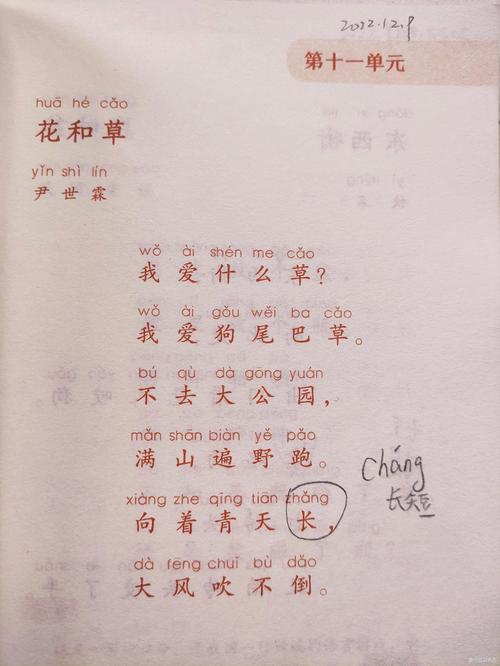 2022.12.9
第十一单元
huā hé cǎo
花和草
yǐn shì lín
尹世霖
wǒ ài shén me cǎo
我爱什么草？
wǒ ài gǒu wěi ba cǎo
我爱狗尾巴草。
bú qù dà gōng yuán
不去大公园，
mǎn shān biàn yě pǎo
满山遍野跑。
xiàng zhe qīng tiān zhǎng
向着青天长，
cháng
长短
dà fēng chuī bù dǎo
大风吹不倒。